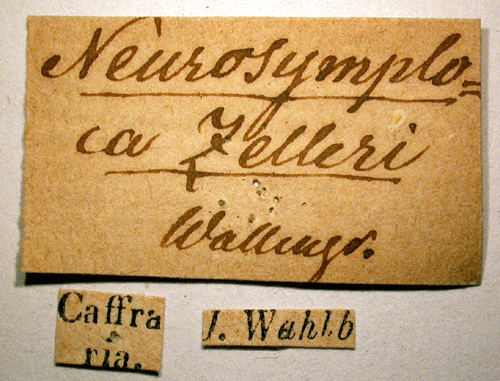 Neurosymplo=
ca Zelleri
Wallengr.
Caffra
ria.
J. Wahlb